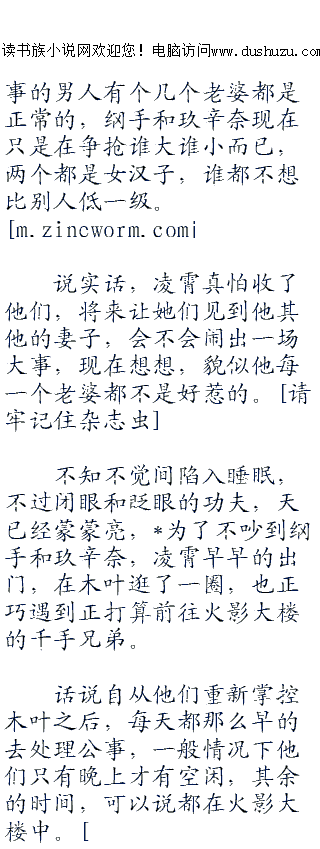 读书族小说网欢迎您！电脑访问www.dushuzu.com
事的男人有个几个老婆都是
正常的，纲手和玖辛奈现在
只是在争抢谁大谁小而已，
两个都是女汉子，谁都不想
比别人低一级。
[m.zincworm.com|
说实话，凌霄真怕收了
他们，将来让她们见到他其
他的妻子，会不会闹出一场
大事，现在想想，貌似他每
一个老婆都不是好惹的。[请
牢记住杂志虫]
不知不觉间陷入睡眠，
不过闭眼和眨眼的功夫，天
已经蒙蒙亮，*为了不吵到纲
手和玖辛奈，凌霄早早的出
门，在木叶逛了一圈，也正
巧遇到正打算前往火影大楼
的千手兄弟。
话说自从他们重新掌控
木叶之后，每天都那么早的
去处理公事，一般情况下他
们只有晚上才有空闲，其余
的时间，可以说都在火影大
楼中。[